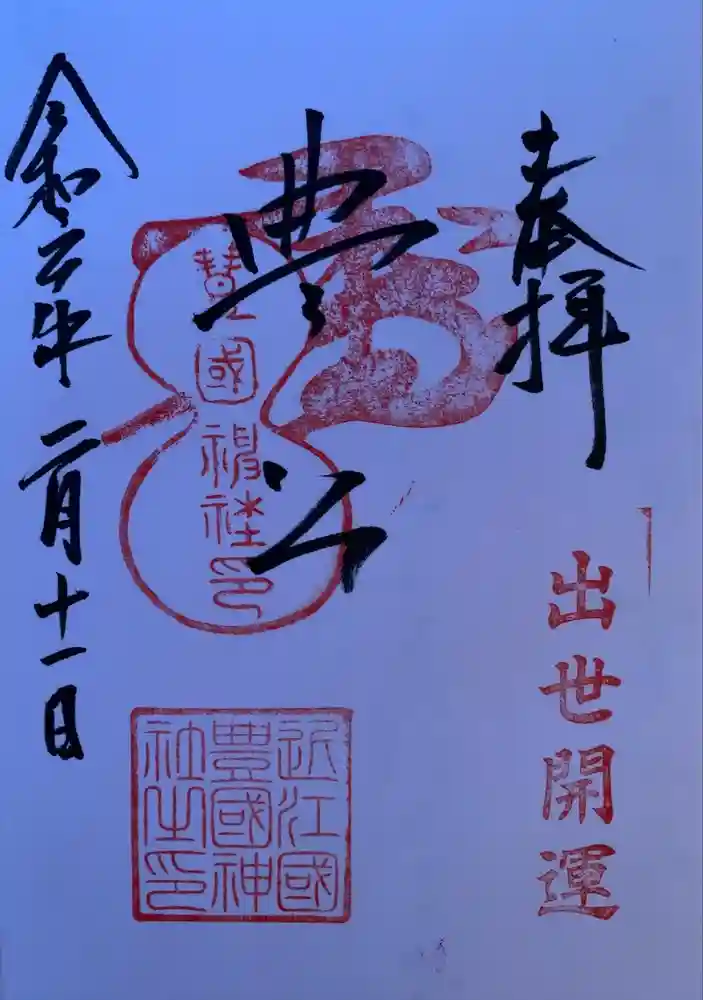 奉拝
出世開運
豊公
豊國神社印
近江國
豊國神
社之印
令和二年二月十一日